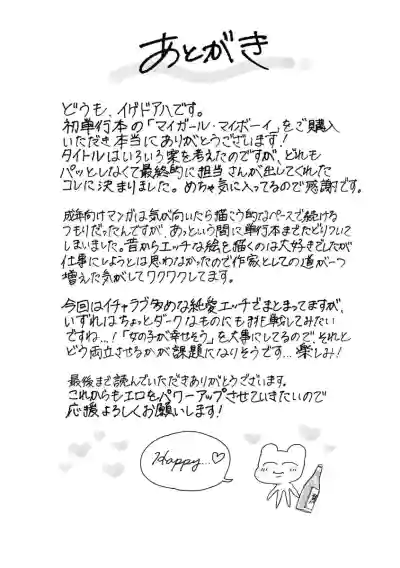 あとがき
どうも、イゲドアハです。
初単行本の「マイガール・マイボーイ」をご購入
いただき本当にありがとうございます!
タイトルはいろいろ案を考えたのですが、どれも
パッとしなくて最終的に担当さんが出してくれた
コレに決まりました。めちゃ気に入ってるので感謝です。
成年向けマンガは気が向いたら描こう的なペースで続ける
つもりだったんですが、あっという間に単行本までたどりついて
しまいました。昔からエッチな絵を描くのは大好きでしたが
仕事にしようとは思わなかったので作家としての道が一つ
増えた気がしてワクワクしてます。
今回はイチャラブ多めな純愛エッチでまとまってますが、
いずれはちょっとダークなものにも挑戦してみたい
ですね…!「女の子が幸せそう」を大事にしてるので、それと
どう両立させるかが課題になりそうです…楽しみ!
最後まで読んでいただきありがとうございます。
これからもエロをパワーアップさせていきたいので
応援よろしくお願いします!
Happy...♡